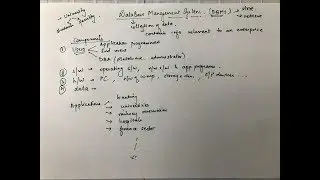 University
DataBase Management System. (DBMS) → store
→ retrieve
collection of data.
contains info relevant to an enterprise
Components
① Users Application programmers
End users
DBA (Database administrator)
② s/w → operating s/w, n/w s/w & app programs
③ h/w → PC,
④ data →
Applications banking
universities
railway reservation
hospitals
finance sector